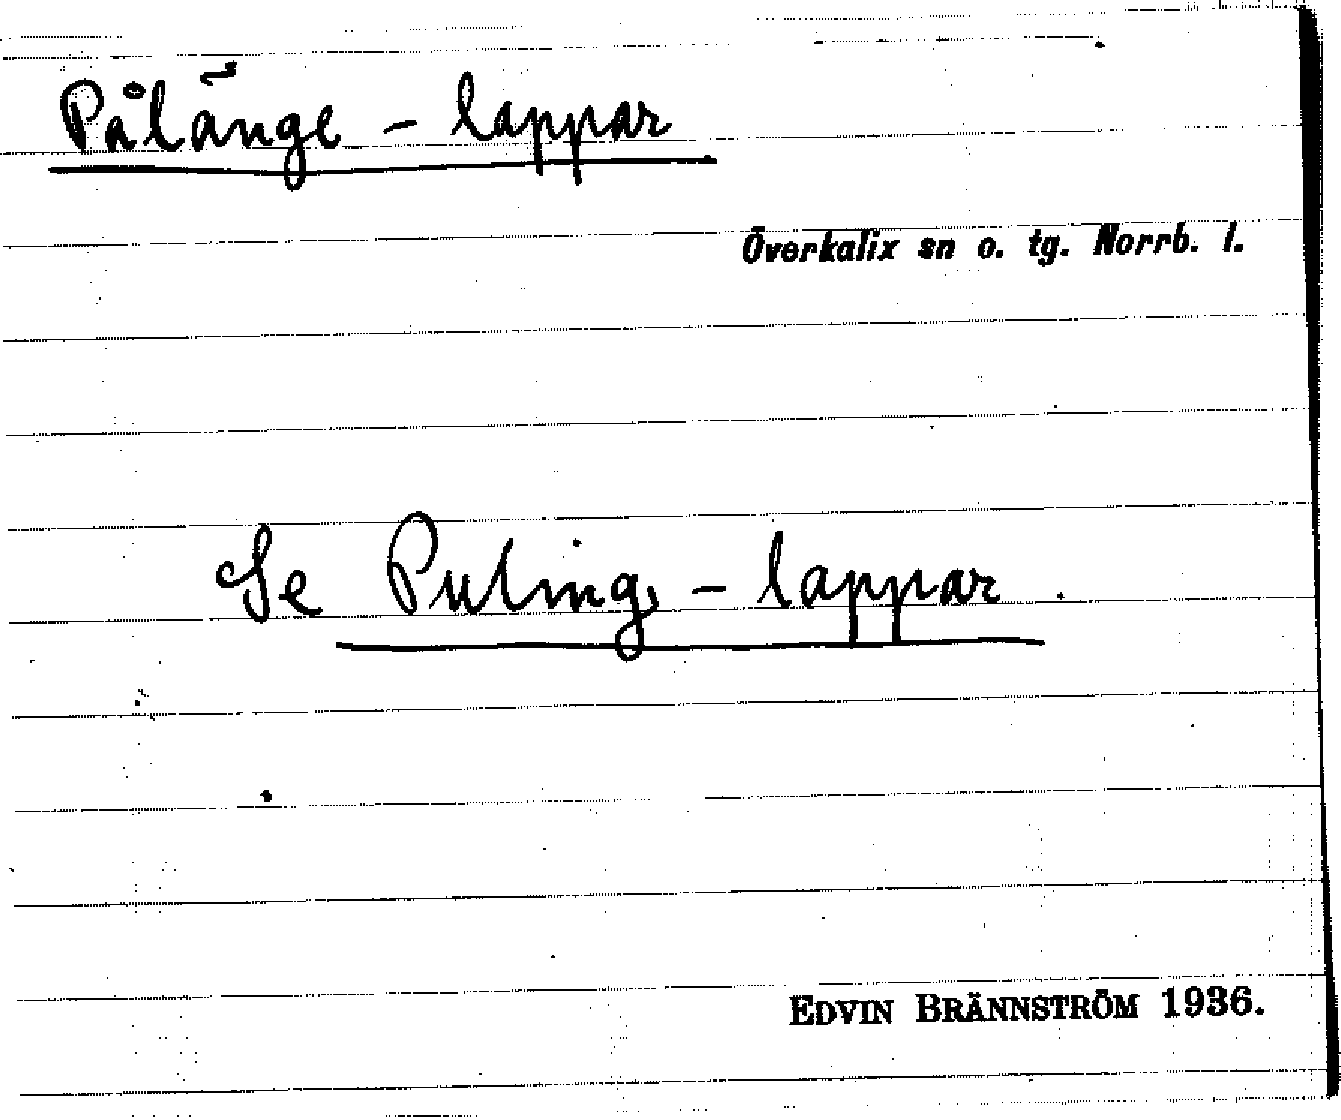 Pålänge - lappar
Överkalix sn o. tg. Norrb. l.
Se Pulings - lappar.
EDVIN BRÄNNSTRÖM 1936.